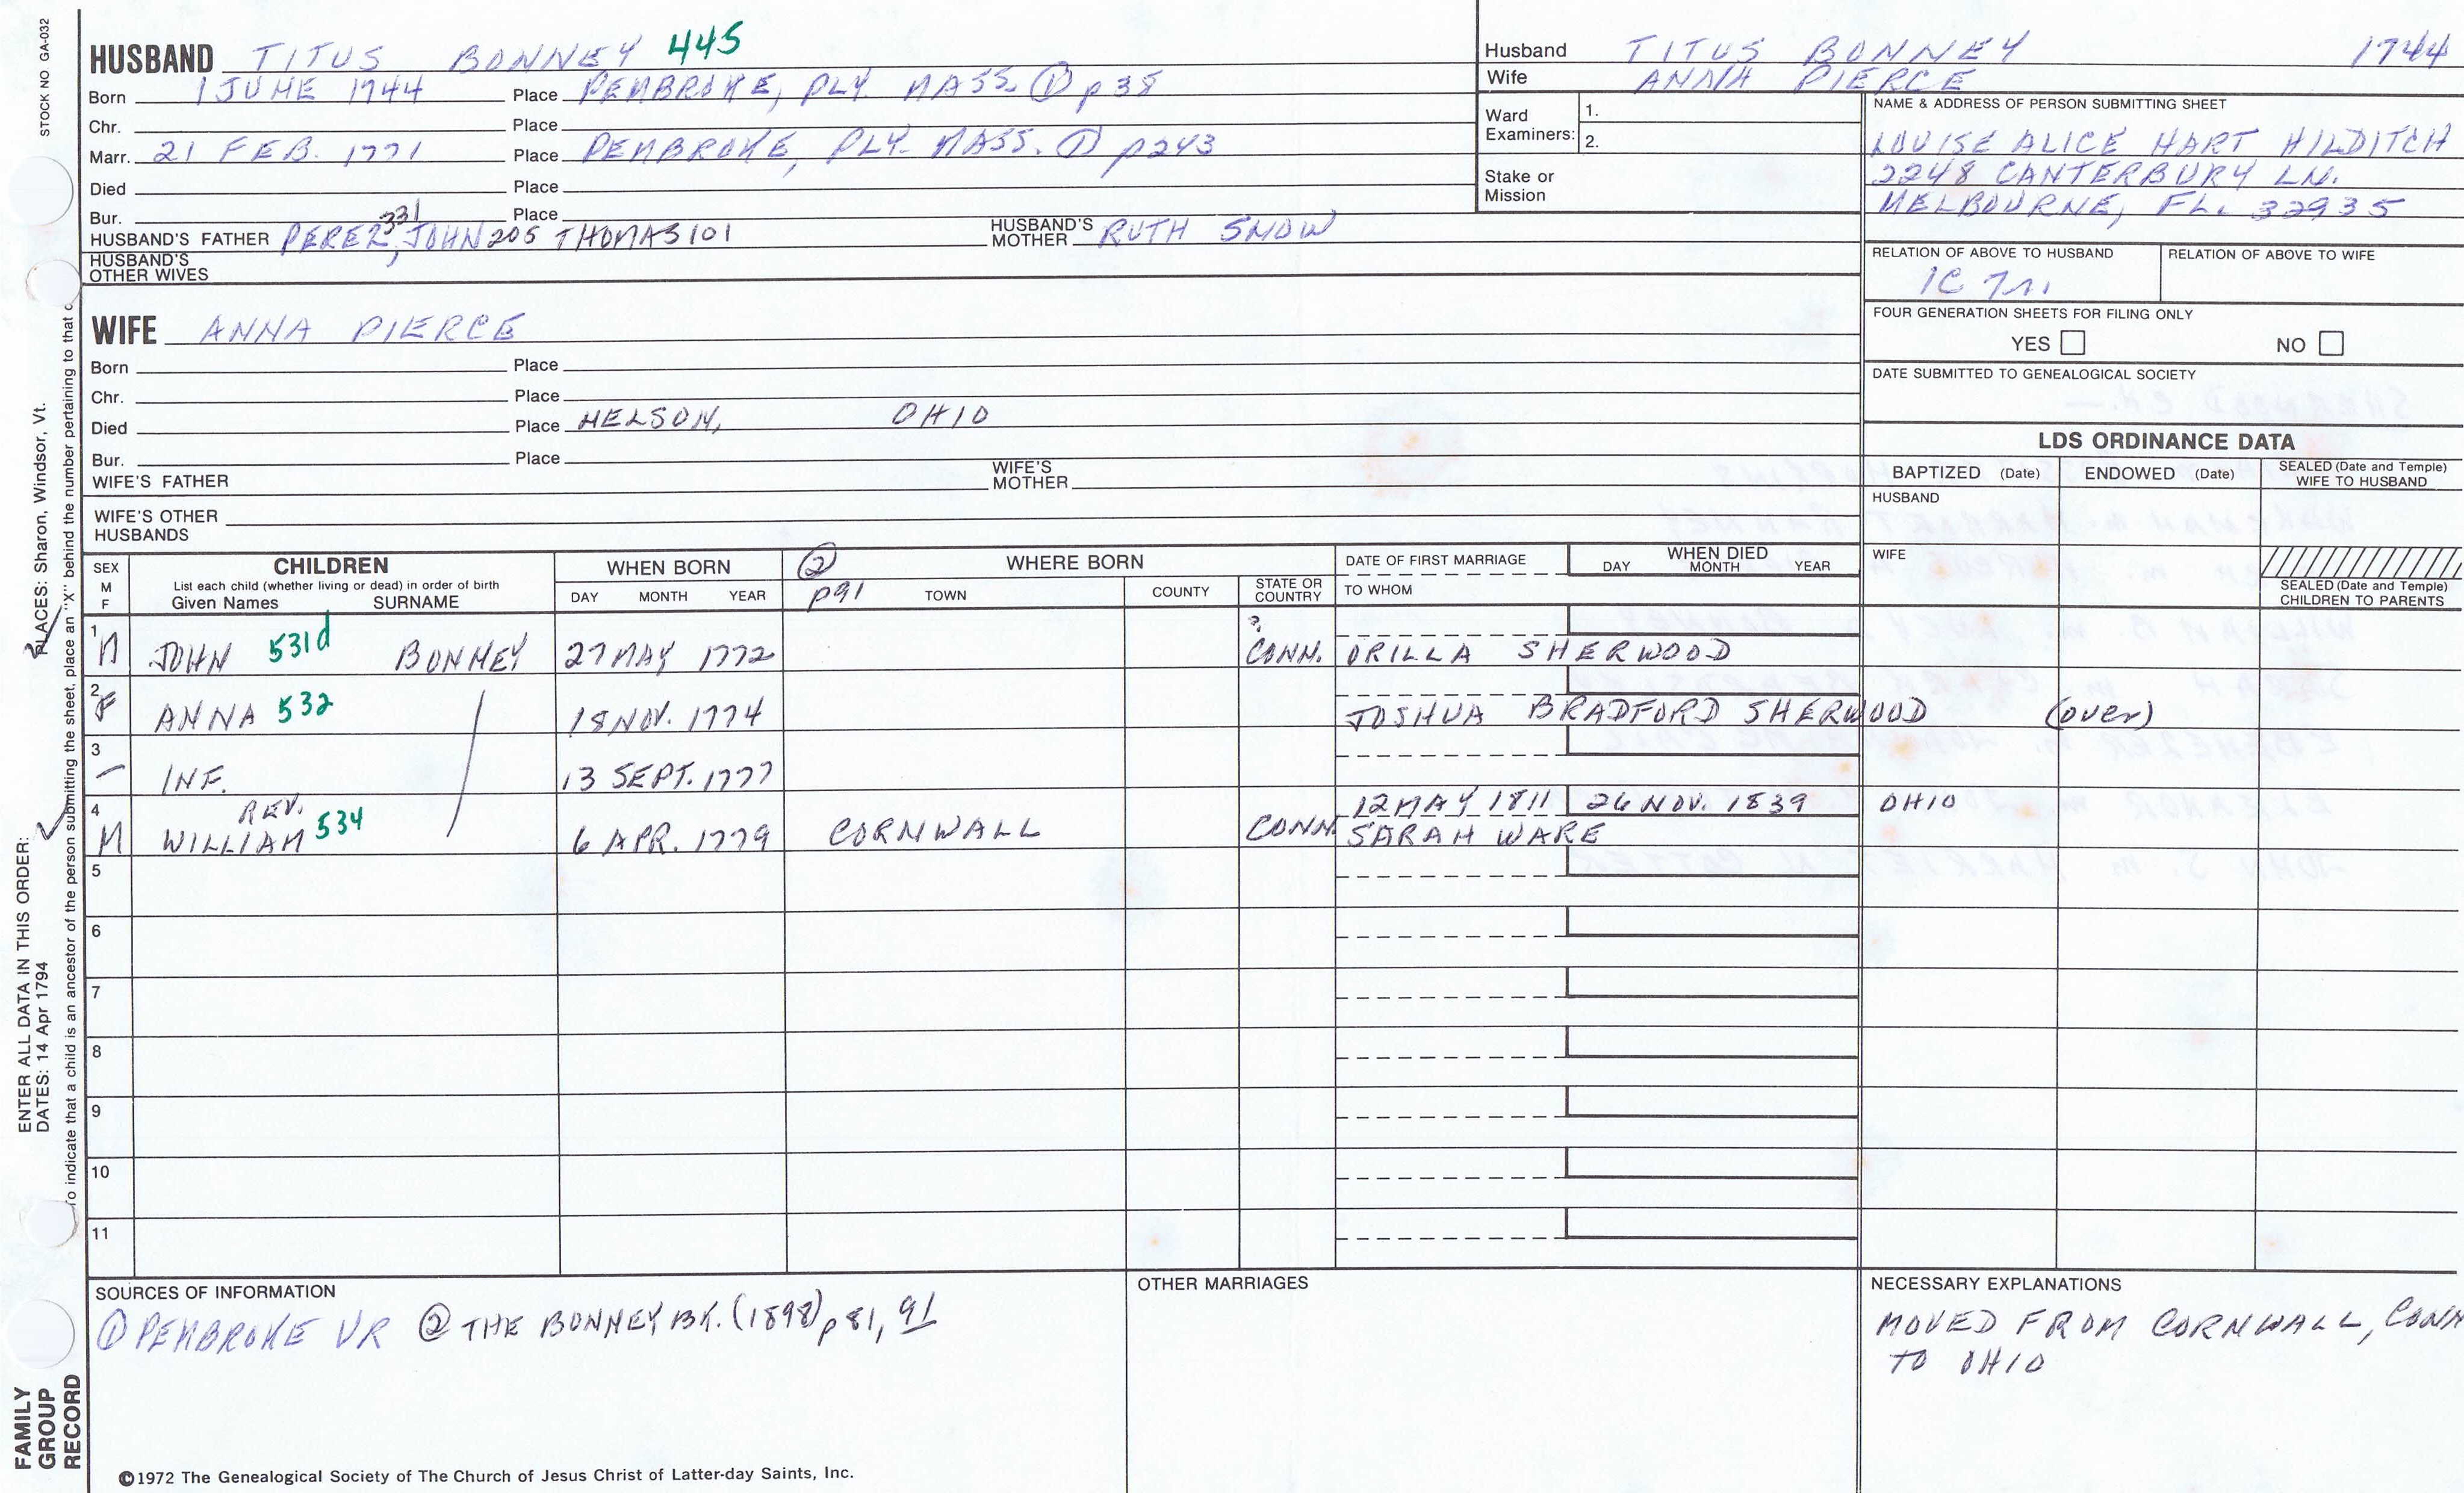 STOCK NO GA-032
HUSBAND TITUS BONNEY 445
Born 1 JUNE 1744 Place PEMBROKE, PLY. MASS. ① p 38
Chr. Place
Marr. 21 FEB. 1771 Place PEMBROKE, PLY. MASS. ① p243
Died Place
Bur. Place
HUSBAND'S FATHER PEREZ 331, JOHN 205 THOMAS 101 HUSBAND'S MOTHER RUTH SNOW
HUSBAND'S OTHER WIVES
Husband TITUS BONNEY 1744
Wife ANNA PIERCE
Ward Examiners: 1.
2.
Stake or Mission
NAME & ADDRESS OF PERSON SUBMITTING SHEET
LOUISE ALICE HART HILDITCH
2248 CANTERBURY LN.
MELBOURNE, FL. 32935
RELATION OF ABOVE TO HUSBAND RELATION OF ABOVE TO WIFE
1C 7r.
FOUR GENERATION SHEETS FOR FILING ONLY
YES NO
DATE SUBMITTED TO GENEALOGICAL SOCIETY
WIFE ANNA PIERCE
Born Place
Chr. Place
Died Place NELSON, OHIO
Bur. Place
WIFE'S FATHER WIFE'S MOTHER
WIFE'S OTHER HUSBANDS
LDS ORDINANCE DATA
BAPTIZED (Date) ENDOWED (Date) SEALED (Date and Temple) WIFE TO HUSBAND
HUSBAND
WIFE
SEALED (Date and Temple) CHILDREN TO PARENTS
SEX M F CHILDREN List each child (whether living or dead) in order of birth Given Names SURNAME
WHEN BORN DAY MONTH YEAR
② p91 WHERE BORN TOWN COUNTY STATE OR COUNTRY
DATE OF FIRST MARRIAGE TO WHOM
WHEN DIED DAY MONTH YEAR
1 M JOHN 531d BONNEY 27 MAY 1772 ? CONN. ORILLA SHERWOOD
2 F ANNA 532 / 18 NOV. 1774 JOSHUA BRADFORD SHERWOOD (over)
3 – INF. 13 SEPT. 1777
4 M REV. WILLIAM 534 6 APR. 1779 CORNWALL CONN 12 MAY 1811 26 NOV. 1839 OHIO
SARAH WARE
5
6
7
8
9
10
11
SOURCES OF INFORMATION
① PEMBROKE VR ② THE BONNEY BK. (1898) p 81, 91
OTHER MARRIAGES
NECESSARY EXPLANATIONS
MOVED FROM CORNWALL, CONN
TO OHIO
©1972 The Genealogical Society of The Church of Jesus Christ of Latter-day Saints, Inc.
FAMILY GROUP RECORD
ENTER ALL DATA IN THIS ORDER:
DATES: 14 Apr 1794
PLACES: Sharon, Windsor, Vt.
To indicate that a child is an ancestor of the person submitting the sheet, place an "X" behind the number pertaining to that c